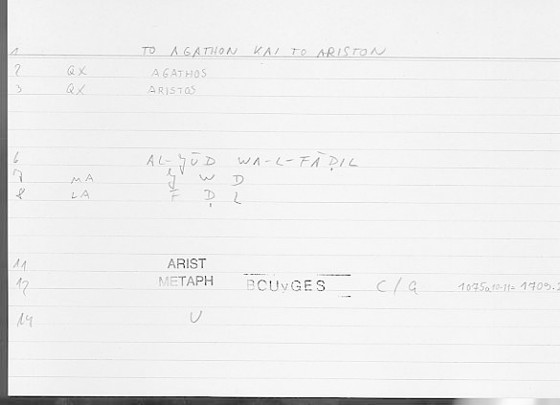 1 TO AGATHON KAI TO ARISTON
2 QX AGATHOS
3 QX ARISTOS
6 AL-ǦŪD WA-L-FĀḌIL
7 MA Ǧ W D
8 LA F Ḍ L
11 ARIST
12 METAPH BCUvGES C/G
14 U